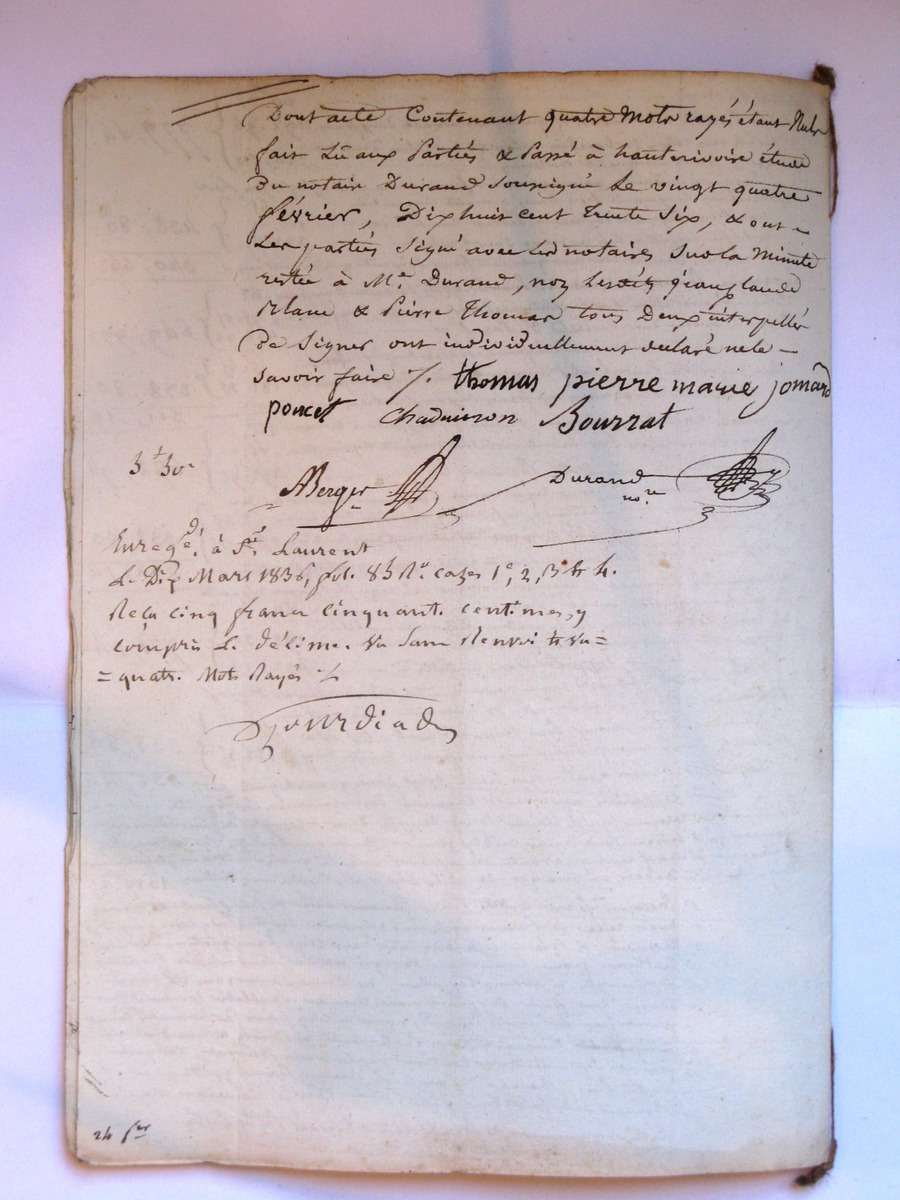 Dont acte Contenant quatre Mots rayés étant Nuls
fait Lû aux Partiés & Passé à hauterivoire étude
du notair Durand Soussigné Le vingt quatre
février, Dix huit cent trente Six, & ont –
Les partiés Signé avec Les notaires Sur la Minute
restée à Me. Durand, non Lesdits jean claude
Blanc & Pierre Thomas tous Deux interpellés
De Signer ont individuellement declaré ne le –
Savoir faire /. thomas pierre marie jomard
poncet Chaduisson Bourrat
5f 50c
Berger Durand
nore
Enregé. à St. Laurent
Le Dix Mars 1836, fol. 85 Ro. cazes 1e, 2, 3 & 4.
Reçu cinq francs cinquante centimes, y
compris Le décime. Vu Sans Renvoi & Vu =
= quatre Mots Rayés ./.
24 fer